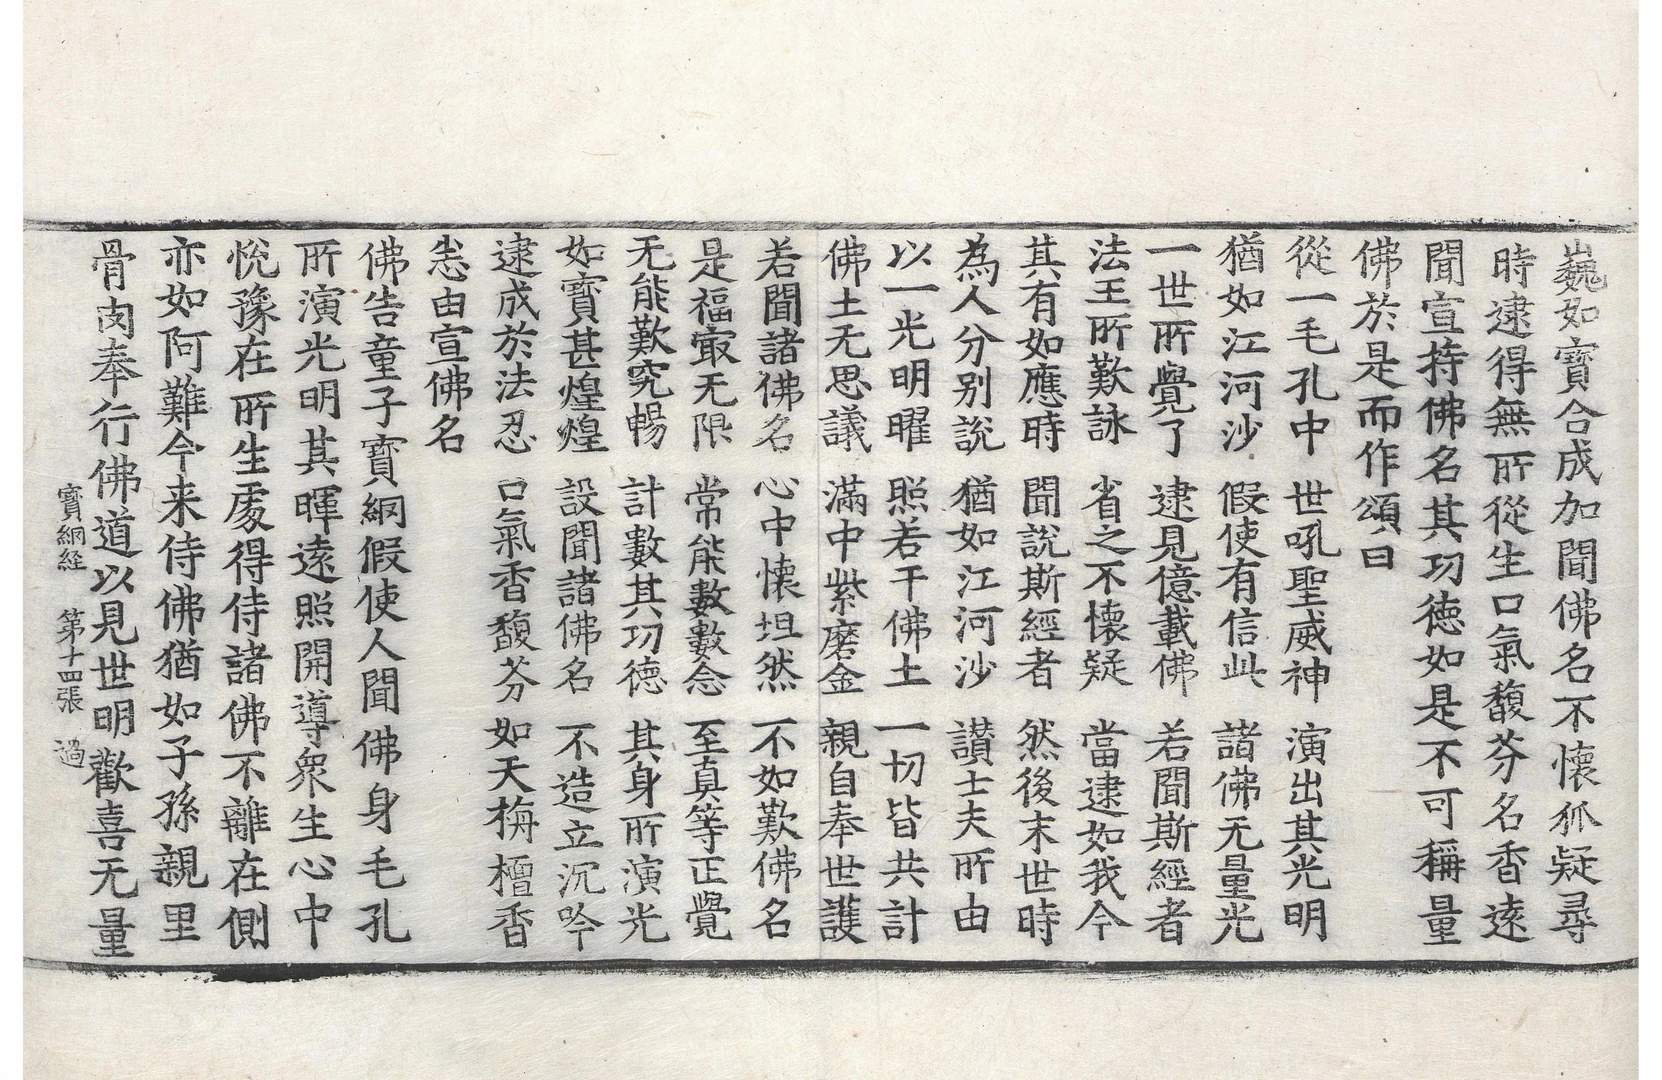 巍如寶合成加聞佛名不懷狐疑尋
時逮得無所從生口氣馥芬名香遠
聞宣持佛名其功德如是不可稱量
佛於是而作頌曰
從一毛孔中 世吼聖威神 演出其光明
猶如江河沙 假使有信此 諸佛无量光
一世所覺了 逮見億載佛 若聞斯經者
法王所歎詠 省之不懷疑 當逮如我今
其有如應時 聞說斯經者 然後末世時
為人分別說 猶如江河沙 讃士夫所由
以一光明曜 照若干佛土 一切皆共計
佛土无思議 滿中紫磨金 親自奉世護
若聞諸佛名 心中懷坦然 不如歎佛名
是福㝡无限 常能數數念 至真等正覺
无能歎究暢 計數其功德 其身所演光
如寶甚煌煌 設聞諸佛名 不造立沉吟
逮成於法忍 口氣香馥芬 如天栴檀香
恙由宣佛名
佛告童子寶網假使人聞佛身毛孔
所演光明其暉遠照開導衆生心中
悅豫在所生處得侍諸佛不離在側
亦如阿難今来侍佛猶如子孫親里
骨肉奉行佛道以見世明歡喜无量
寶網経 第十四張 過